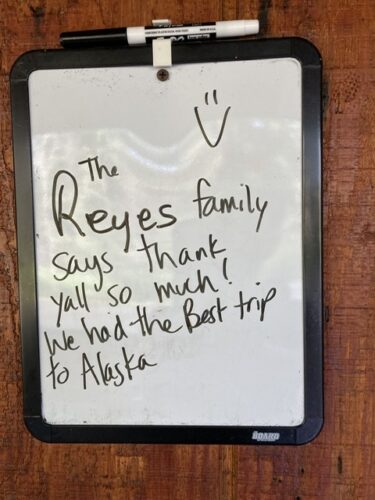 The
Reyes family
says thank
yall so much!
We had the Best trip
to Alaska
BOARD